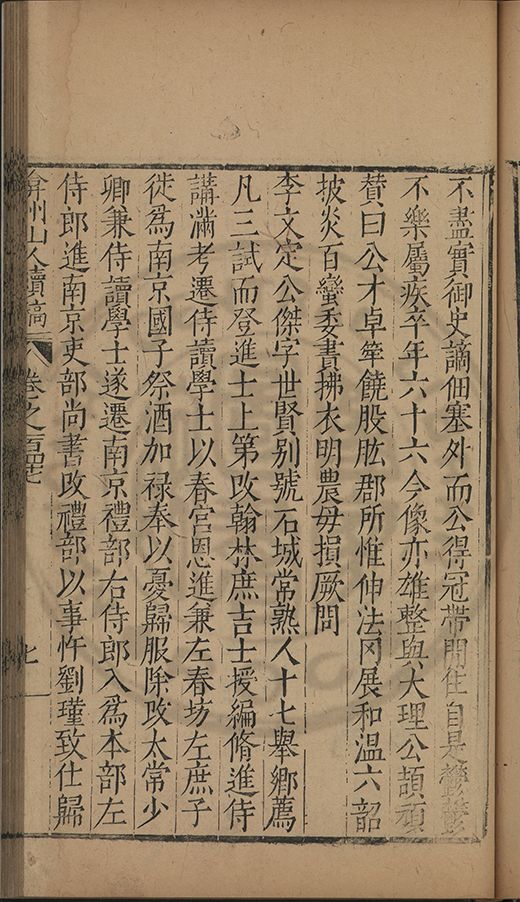 不盡實御史謫佃塞外而公得冠帶閒住自是鬱鬱
不樂屬疾卒年六十六今像亦雄整與大理公頡頏
贊曰公才卓犖饒股肱郡所惟伸法罔展和溫六韶
披炎百蠻委賷拂衣明農毋損厥問
李文定公傑字世賢別號石城常熟人十七舉鄉薦
凡三試而登進士上第改翰林庶吉士授編脩進侍
講滿考遷侍讀學士以春宮恩進兼左春坊左庶子
徙爲南京國子祭酒加祿奉以憂歸服除改太常少
卿兼侍讀學士遂遷南京禮部右侍郎入爲本部左
侍郎進南京吏部尚書改禮部以事忤劉瑾致仕歸
弇州山人續稿 卷之一百四十七 七